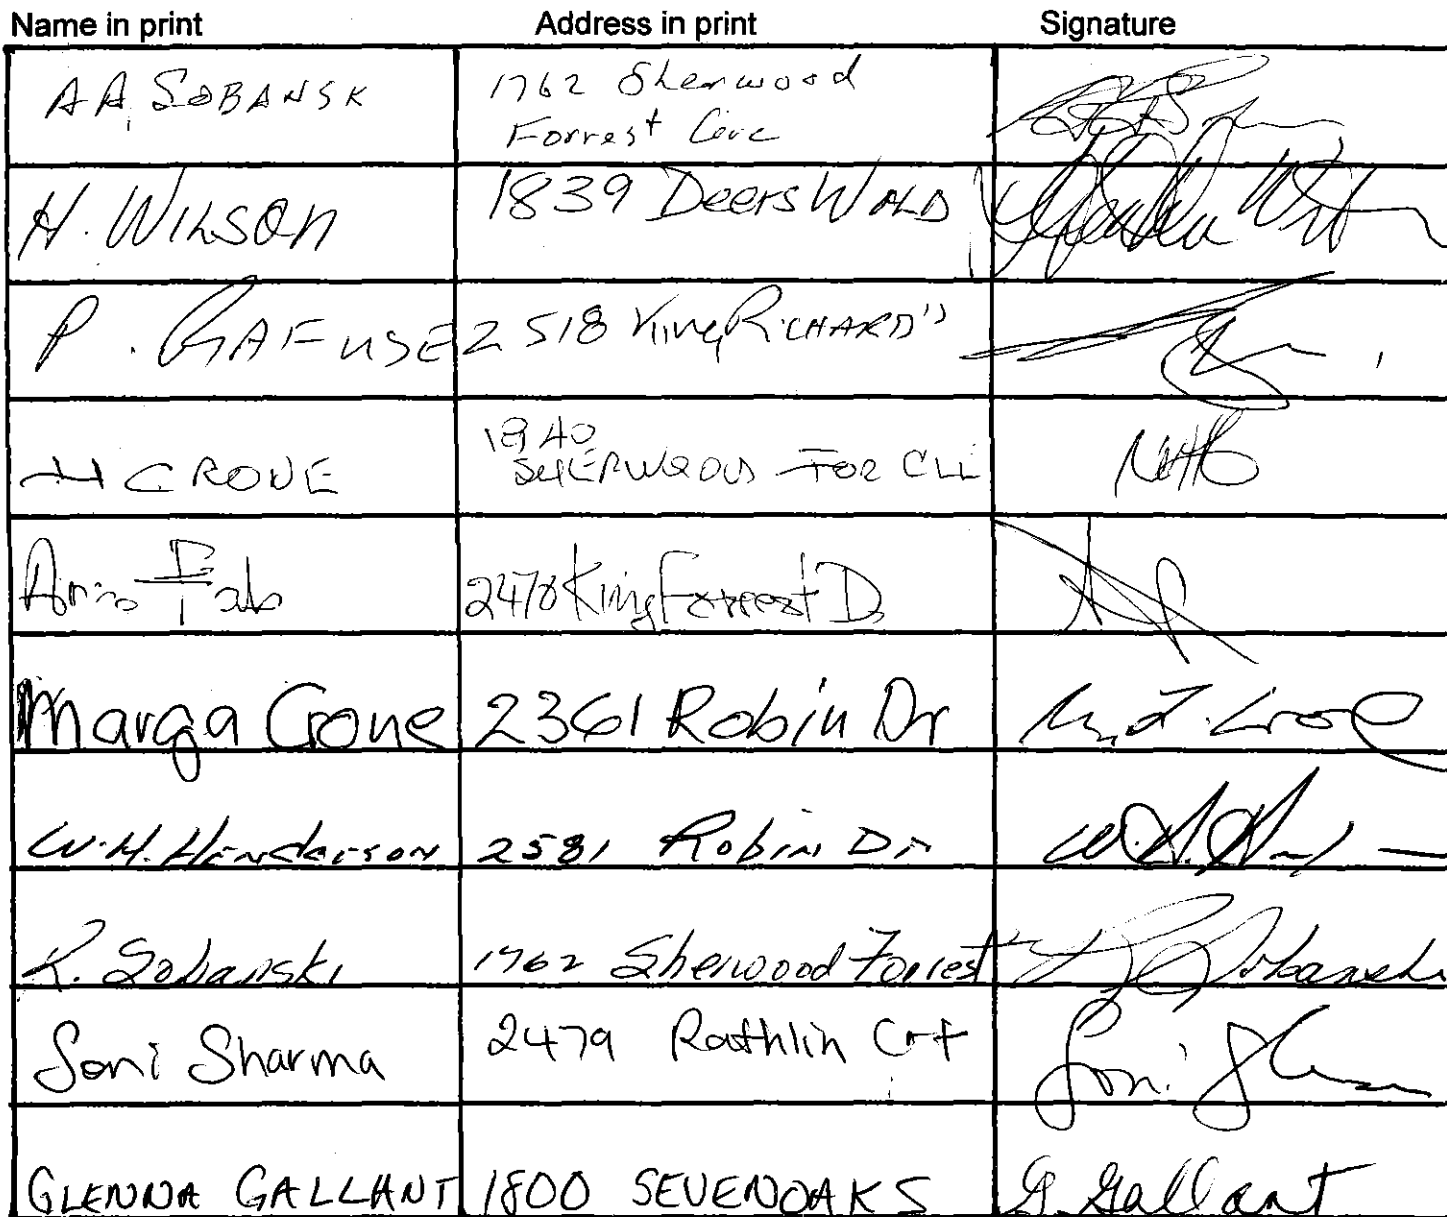 Name in print Address in print Signature
A A SOBANSK 1762 Sherwood
Forrest Circ
H. WILSON 1839 Deers Wold
P. RAFUSE 2518 King RICHARD'S
H CRONE 1940
SHERWOOD FOR CLL
Fab 2478 King Forrest D
Marga Crone 2361 Robin Dr
W.H. Henderson 2581 Robin Dr
R. Sobanski 1762 Sherwood Forrest Sobanski
Soni Sharma 2479 Rathlin Crt Soni
GLENNA GALLANT 1800 SEVENOAKS G. Gallant